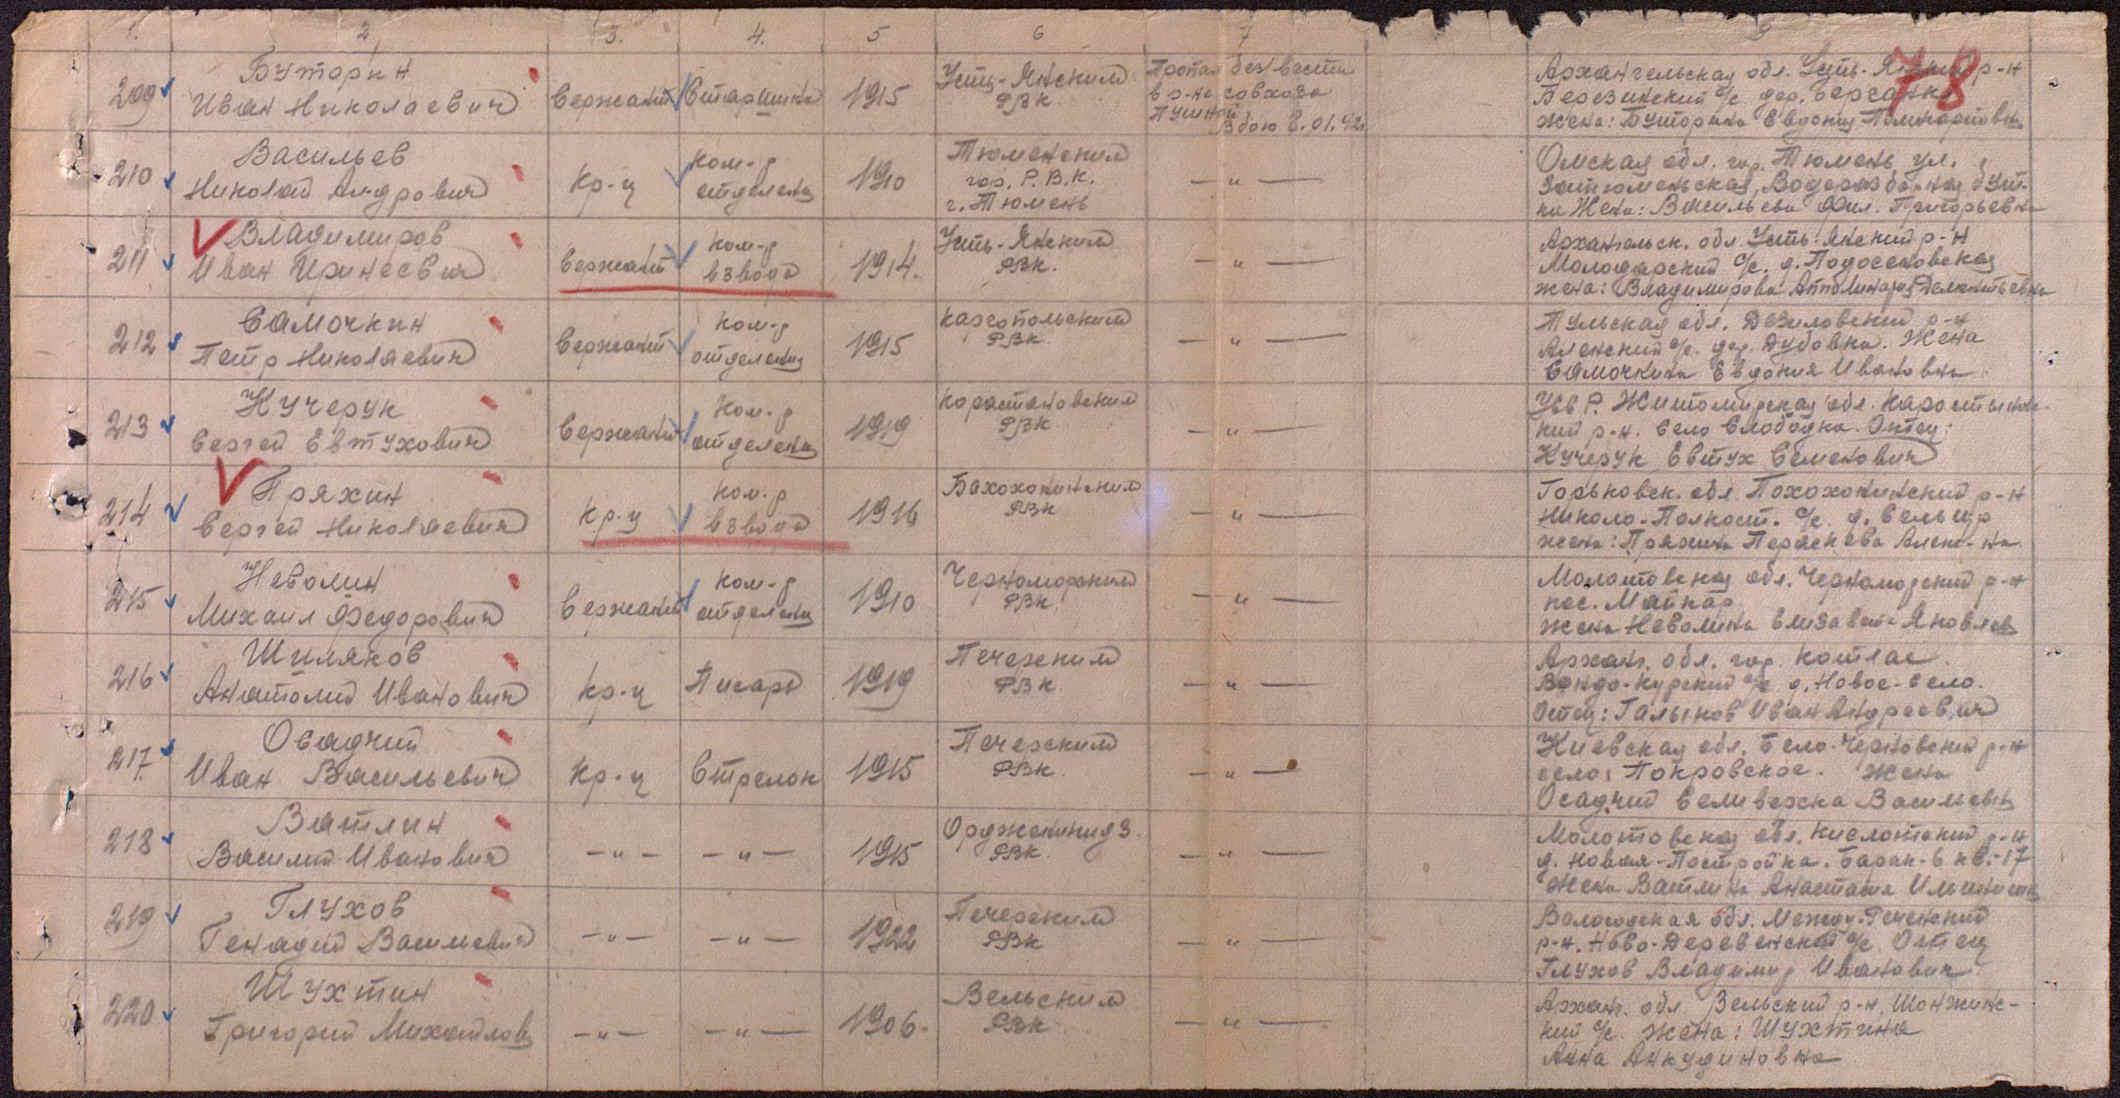 1. 2 3. 4. 5 6 7
78
209 Буторин Иван Николаевич Сержант Старшина 1915 Усть-Янским РВК Пропал без вести в р-не совхоза Пушной В бою 8.01.42
Архангельская обл. Усть- р-н
Березинский с/с дер.
жена: Буторина Евдокия
210 Васильев Николай Андрович Кр-ц ком-р отделения 1910 Тюменским гор. Р.В.К. г. Тюмень — " —
Омская обл. гор. Тюмень ул.
Затюменская, Водоразборная буд-
ка Жена: Васильева Фил. Григорьевна
211 Владимиров Иван Сержант ком-р взвода 1914. Усть-Янским РВК. — " —
Архангельск. обл. Усть-Янский р-н
с/с. д. Подосеновская
жена: Владимирова
212 Самочкин Петр Николаевич Сержант ком-р отделения 1915 Каргопольским РВК. — " —
Тульская обл. р-н
с/с. дер. Дубовка. Жена
Самочкина Евдокия Ивановна
213 Кучерук Сергей Евтухович Сержант ком-р отделения 1919 РВК — " —
Житомирская обл.
кий р-н. село Слободка. Отец:
Кучерук Евтух Семенович
214 Пряхин Сергей Николаевич Кр-ц ком-р взвода 1916 РВК — " —
Горьковск. обл. р-н
Николо- с/с. д.
жена: Пряхина
215 Неволин Михаил Федорович Сержант ком-р отделения 1910 Черноморским РВК. — " —
Молотовская обл. Черноморский р-н
пос. Майкар
жена Неволина Елизавет- Яковлев
216 Шиляков Анатолий Иванович Кр-ц Писарь 1919 Печерским РВК. — " —
Архан. обл. гор. Котлас.
с/с д. Новое-Село.
Отец: Иван Андреевич
217 Осадчий Иван Васильевич Кр-ц Стрелок 1915 Печерским РВК. — " —
Киевская обл. Бело-Церковский р-н
село: Покровское. Жена
Осадчий Васильевна
218 Ватлин Василий Иванович — " — — " — 1915 Орджоникидз. РВК. — " —
Молотовская обл. р-н
д. Новая-Постройка. Барак-6 кв.-17
Жена Ватлина Анастасия
219 Глухов Генадий — " — — " — 1922 Печерским РВК — " —
Вологодская обл. Между-Реченский
р-н. Ново-Деревенский с/с. Отец
Глухов Владимир Иванович
220 Шухтин Григорий Михайлов — " — — " — 1906. Вельским РВК — " —
Архан. обл Вельский р-н, Шонжинс-
кий с/с. жена: Шухтина
Анна Анкудиновна